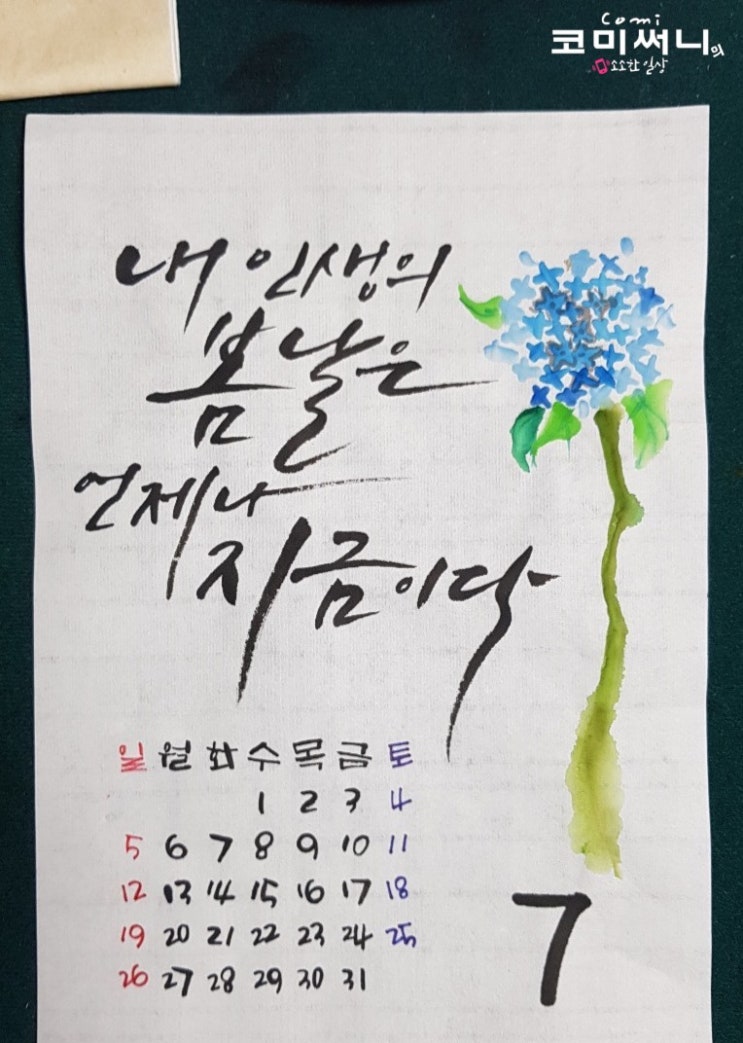 Comi
코미써니의
소소한 일상
내 인생의
봄날은
언제나
지금이다
일 월 화 수 목 금 토
1 2 3 4
5 6 7 8 9 10 11
12 13 14 15 16 17 18
19 20 21 22 23 24 25
26 27 28 29 30 31
7